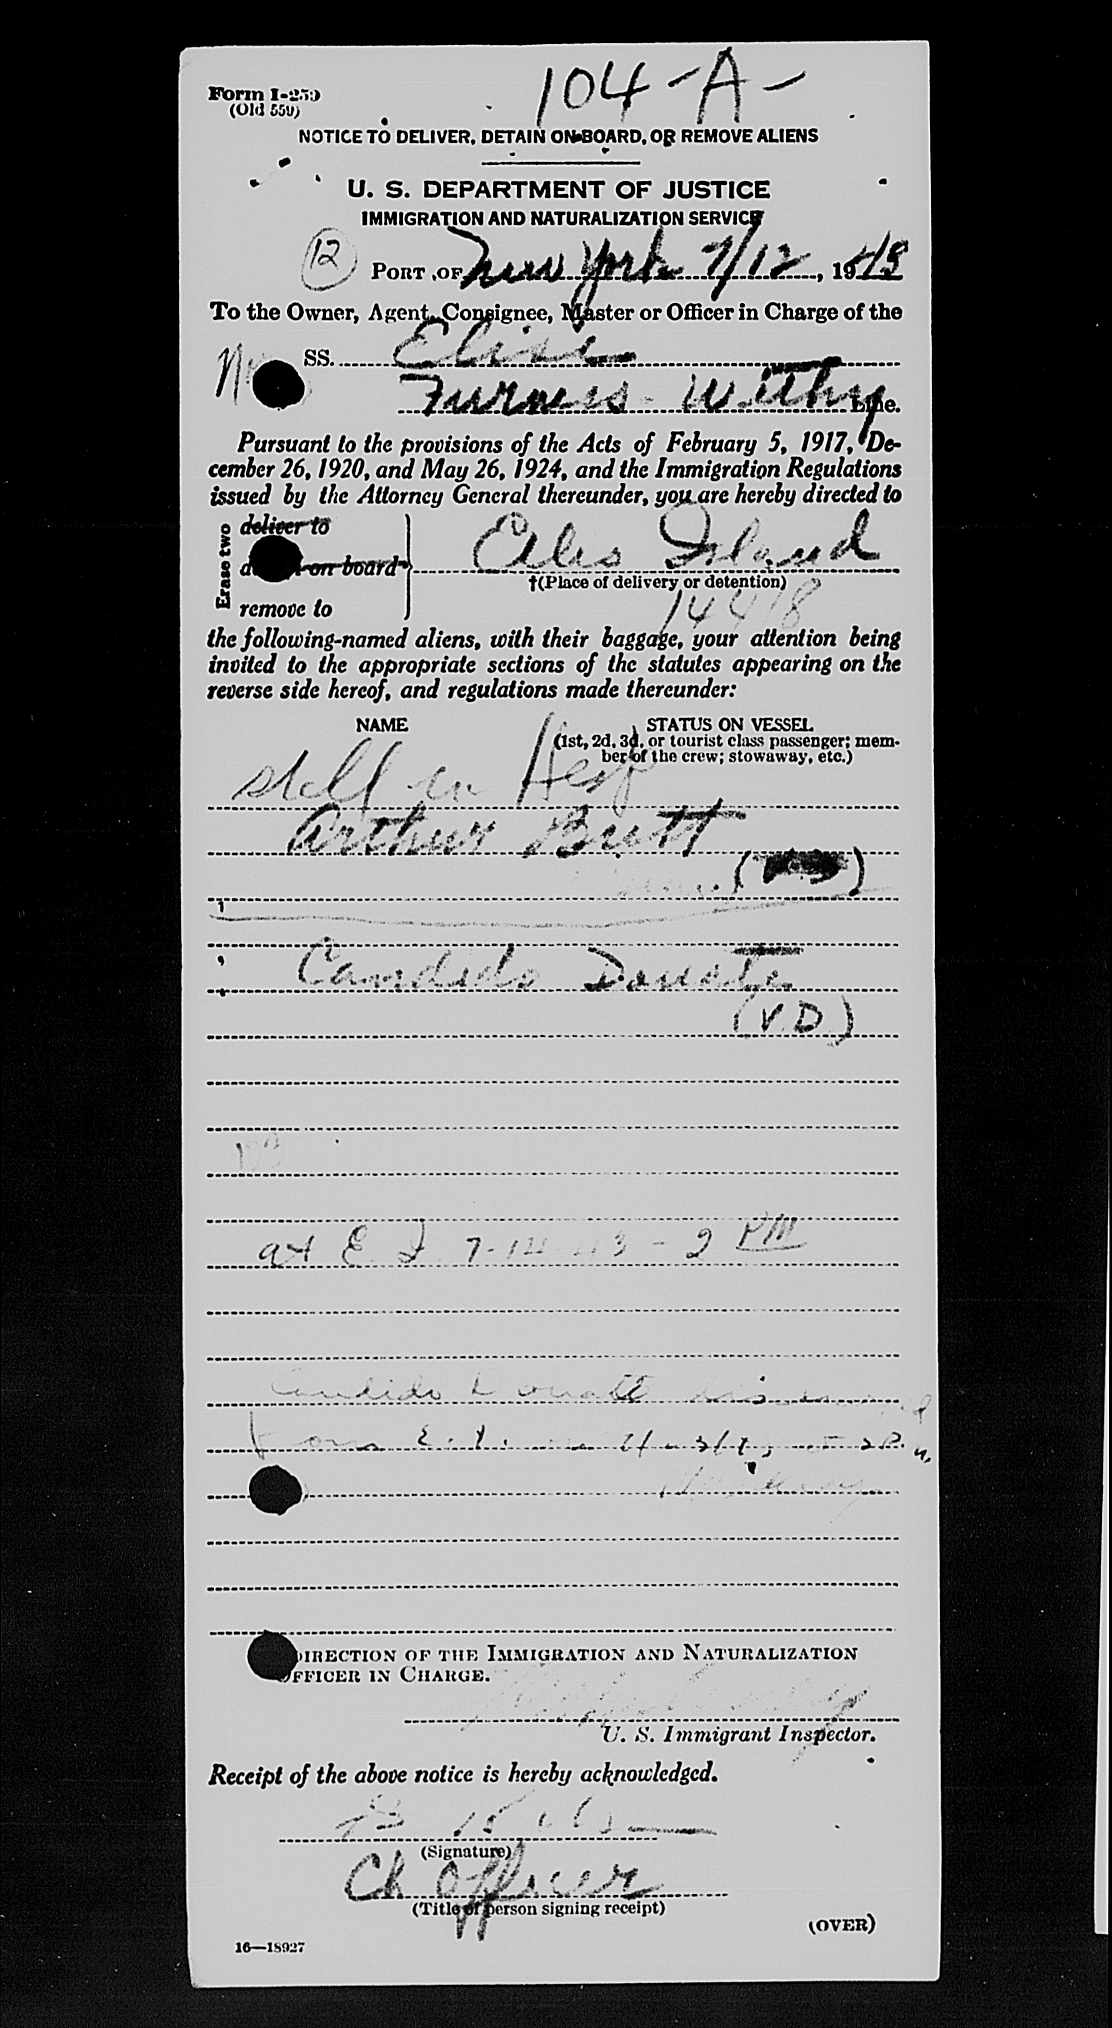 104-A-
Form I-259
(Old 559)
NOTICE TO DELIVER, DETAIN ON BOARD, OR REMOVE ALIENS
U. S. DEPARTMENT OF JUSTICE
IMMIGRATION AND NATURALIZATION SERVICE
12 PORT OF New York 7/12, 1943
To the Owner, Agent, Consignee, Master or Officer in Charge of the
SS. Elise
Furness Withy Line.
Pursuant to the provisions of the Acts of February 5, 1917, De-
cember 26, 1920, and May 26, 1924, and the Immigration Regulations
issued by the Attorney General thereunder, you are hereby directed to
Erase two
deliver to
on board
Ellis Island
†(Place of delivery or detention)
remove to
14418
the following-named aliens, with their baggage, your attention being
invited to the appropriate sections of the statutes appearing on the
reverse side hereof, and regulations made thereunder:
NAME STATUS ON VESSEL
(1st, 2d, 3d, or tourist class passenger; mem-
ber of the crew; stowaway, etc.)
still in Hosp
Arthur Brett
Candido Donate
(V.D.)
at E I 7-14-43 - 2 PM
Candido
from E. I.
DIRECTION OF THE IMMIGRATION AND NATURALIZATION
OFFICER IN CHARGE.
U. S. Immigrant Inspector.
Receipt of the above notice is hereby acknowledged.
(Signature)
Ch Officer
(Title of person signing receipt)
(OVER)
16—18927